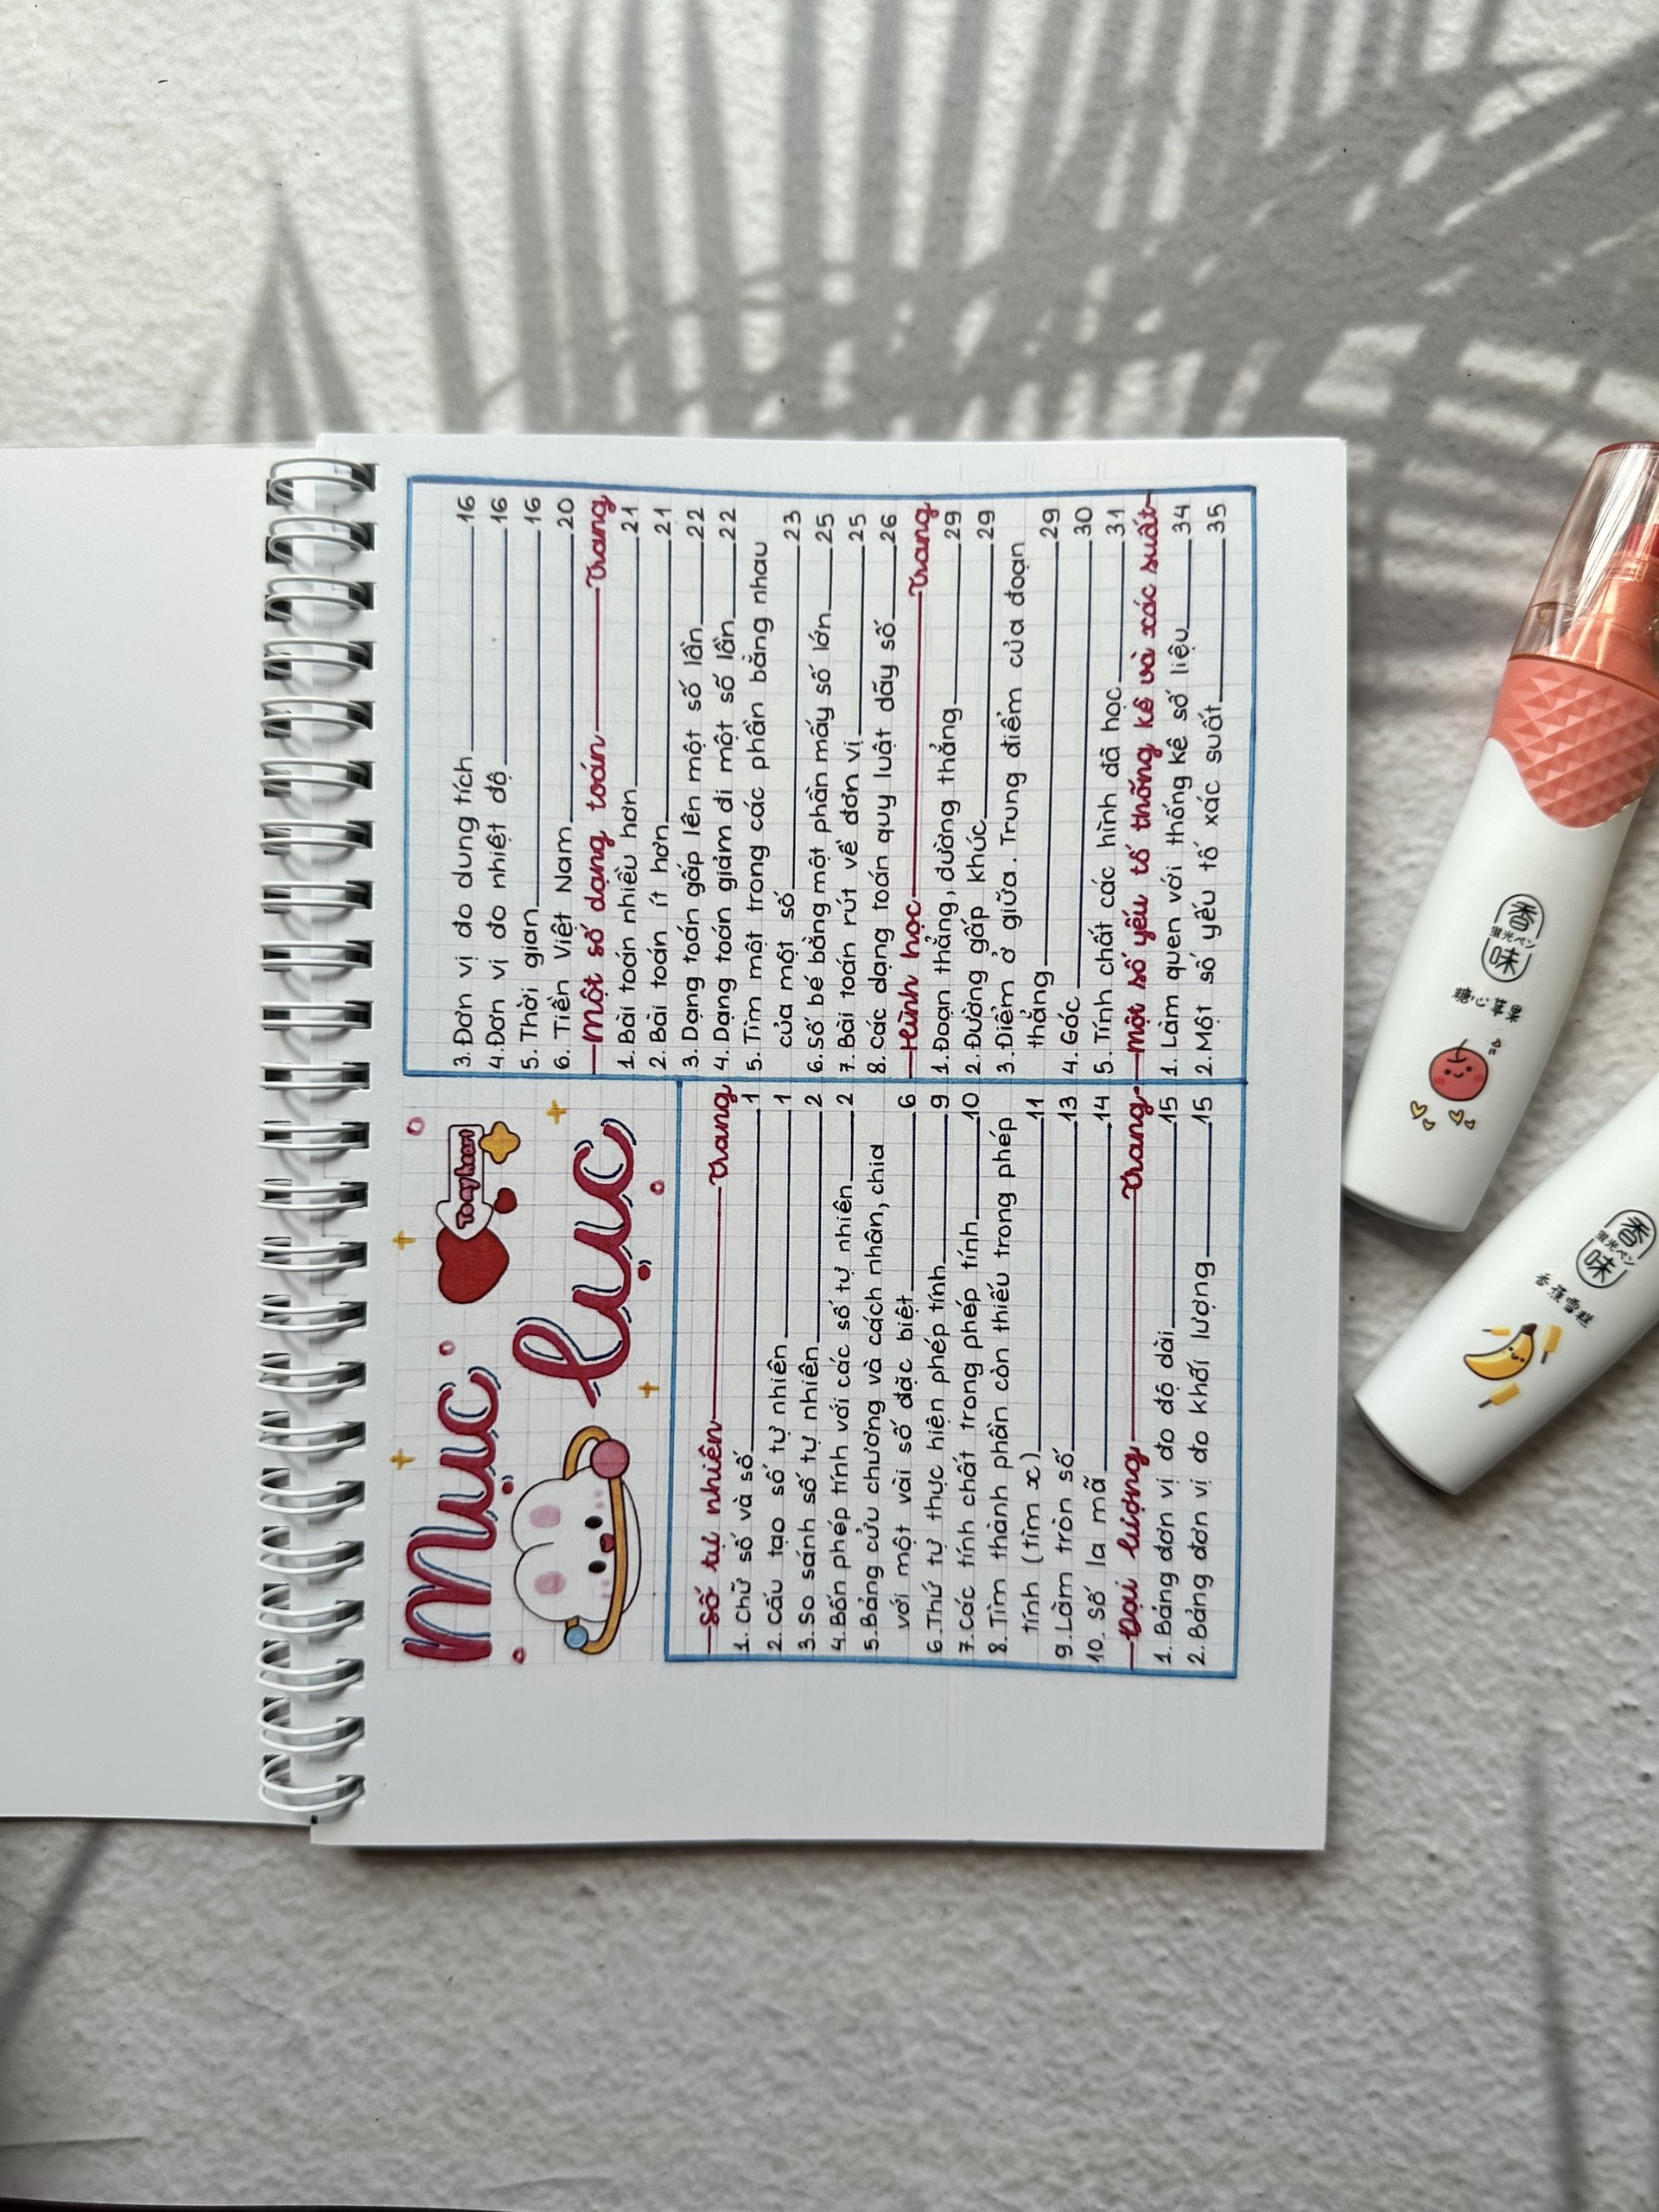 Mục lục
To day learn
Số tự nhiên Trang
1. Chữ số và số 1
2. Cấu tạo số tự nhiên 1
3. So sánh số tự nhiên 2
4. Bốn phép tính với các số tự nhiên 2
5. Bảng cửu chương và cách nhân, chia
với một vài số đặc biệt 6
6. Thứ tự thực hiện phép tính 9
7. Các tính chất trong phép tính 10
8. Tìm thành phần còn thiếu trong phép
tính (tìm x) 11
9. Làm tròn số 13
10. Số la mã 14
Đại lượng Trang
1. Bảng đơn vị đo độ dài 15
2. Bảng đơn vị đo khối lượng 15
3. Đơn vị đo dung tích 16
4. Đơn vị đo nhiệt độ 16
5. Thời gian 16
6. Tiền Việt Nam 20
Một số dạng toán Trang
1. Bài toán nhiều hơn 21
2. Bài toán ít hơn 21
3. Dạng toán gấp lên một số lần 22
4. Dạng toán giảm đi một số lần 22
5. Tìm một trong các phần bằng nhau
của một số 23
6. Số bé bằng một phần mấy số lớn 25
7. Bài toán rút về đơn vị 25
8. Các dạng toán quy luật dãy số 26
Hình học Trang
1. Đoạn thẳng, đường thẳng 29
2. Đường gấp khúc 29
3. Điểm ở giữa. Trung điểm của đoạn
thẳng 29
4. Góc 30
5. Tính chất các hình đã học 31
Một số yếu tố thống kê và xác suất
1. Làm quen với thống kê số liệu 34
2. Một số yếu tố xác suất 35
香味
蛍光ペン
糖心苹果
香味
蛍光ペン
香蕉雪糕